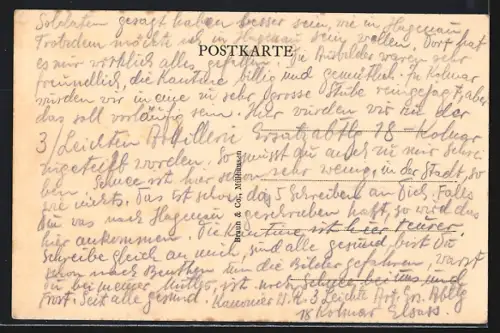 Soldaten gesagt haben besser sein, wie in Hagenau
Trotzdem möchte ich in Hagenau sein wollen. Dort hat
es mir wirklich alles gefallen. Die Ausbilder waren sehr
freundlich, die Kantine billig und gemütlich. In Kolmar
wurden wir in eine zu sehr grosse Stube reingejagt, aber
das soll vorläufig sein. Hier wurden wir zu der
3/Leichten Artillerie Ersatzabtlg 18 - Kolmar
zugeteilt worden. So musst du auch zu mir schrei
ben. Schnee ist hier schon sehr wenig, in der Stadt, so
wie nichts. Das ist schon das 5 Schreiben an Dich. Falls
du was nach Hagenau geschrieben hast, so wird das
hier ankommen. Die Kantine ist hier teurer.
Schreibe gleich an mich, und alle gesund, bist du
schon nach Beuthen um die Bilder gefahren, warst
du bei meiner Mutter, ist noch Schnee bei uns und
Frost. Seit alle gesund. Kanonier K. 3 Leichte Art. Ers. Abtlg
18 Kolmar Elsass.
POSTKARTE
Braun & Cie., Mülhausen